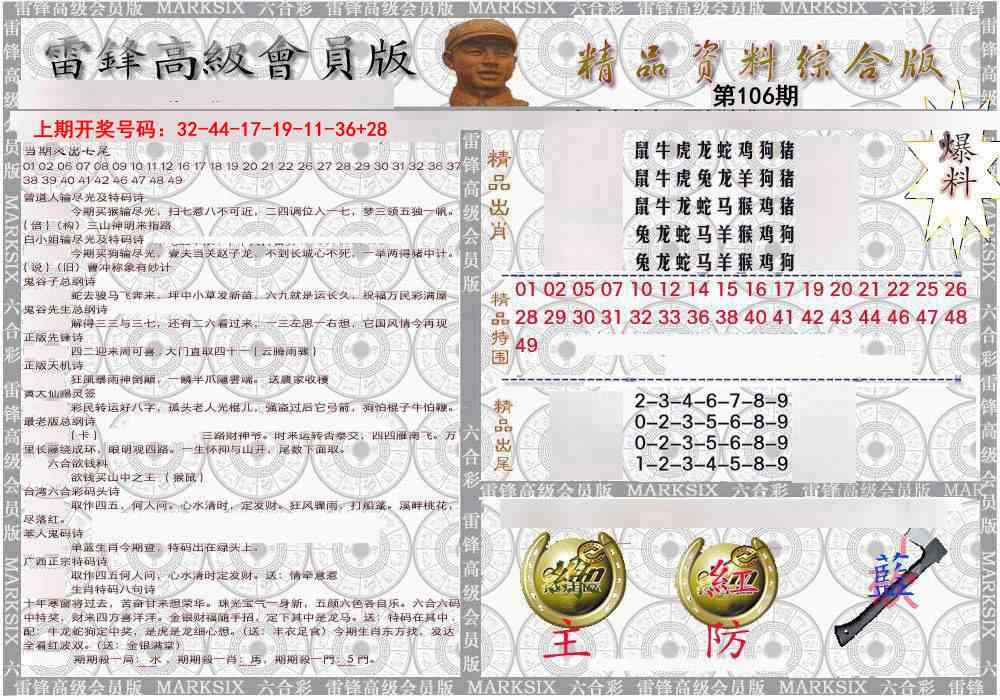 雷锋高级会员版 MARKSIX 六合彩 雷锋高级会员版 MARKSIX 六合彩 雷锋高级会员版 MARKSIX 六合彩 雷锋
雷鋒高級會員版
精品资料综合版
第106期
上期开奖号码：32-44-17-19-11-36+28
当期火出七尾
01 02 06 07 08 09 10 11 12 16 17 18 19 20 21 22 26 27 28 29 30 31 32 36 37
38 39 40 41 42 46 47 48 49
曾道人输尽光及特码诗
今期买猴输尽光，扫七惹八不可近，二四调位入一七，梦三领五独一帆。
{倍}（构）三山神明来指路
白小姐输尽光及特码诗
今期买狗输尽光，壹夫当关赵子龙，不到长城心不死，一举两得猪中计。
{说}（旧）曹冲称象有妙计
鬼谷子总纲诗
蛇去骏马飞奔来，坪中小草发新苗，六九就是运长久，祝福万民彩满屋
鬼谷先生总纲诗
解得三三与三七，还有二六看过来，一三左思一右想，它国风情今再现
正版先锋诗
四二迎来周可喜，大门直取四十一{云腾雨骤}
正版天机诗
狂風暴雨神倒顛，一鱗半爪隱雲端。 送農家收穫
黄大仙赐灵签
彩民转运好八字，孤头老人光棍儿，强盗过后它弓箭，狗怕棍子牛怕鞭。
最老版总纲诗
{卡} 三路财神爷。时来运转否泰交，四四雁南飞。万
里长藤绕成环，眼明观四路。一生怀抑与山开，尾数下面取。
六合欲钱料
欲钱买山中之王 {猴鼠}
台湾六合彩码头诗
取作四五，何人问。心水清时，定发财。狂风骤雨，打船蓬。溪畔桃花，
尽落红。
本人鬼码诗
单蓝生肖今期查，特码出在绿头上。
广西正宗特码诗
取作四五何人问，心水清时定发财。送：情牵意惹
生肖特码八句诗
十年寒窗将过去，苦奋甘来想荣华。珠光宝气一身新，五颜六色各自乐。六合六码
中特奖，财来四方喜洋洋。金银财福随手招，定下其中是龙马。送：特码在其中，
配：牛龙蛇狗定中奖，是虎是龙细心想。（送：丰衣足食）今期生肖东方找，发达
全看红波双。（送：金银满堂）
期期殺一局：水，期期殺一肖：馬，期期殺一門：5門。
精品出肖
鼠牛虎龙蛇鸡狗猪
鼠牛虎兔龙羊狗猪
鼠牛龙蛇马猴鸡猪
兔龙蛇马羊猴鸡狗
兔龙蛇马羊猴鸡狗
爆料
精品特围
01 02 05 07 10 12 14 15 16 17 19 20 21 22 25 26
28 29 30 31 32 33 36 38 40 41 42 43 44 46 47 48
49
精品出尾
2-3-4-6-7-8-9
0-2-3-5-6-8-9
0-2-3-5-6-8-9
1-2-3-4-5-8-9
雷锋高级会员版 MARKSIX 六合彩 雷锋高级会员版 MAR
紅
藍
主
防
雷锋高级会员版 MARKSIX 六合彩 雷锋高级会员版 MARKSIX 六合彩 雷锋高级会员版 MARKSIX 六合彩 雷锋